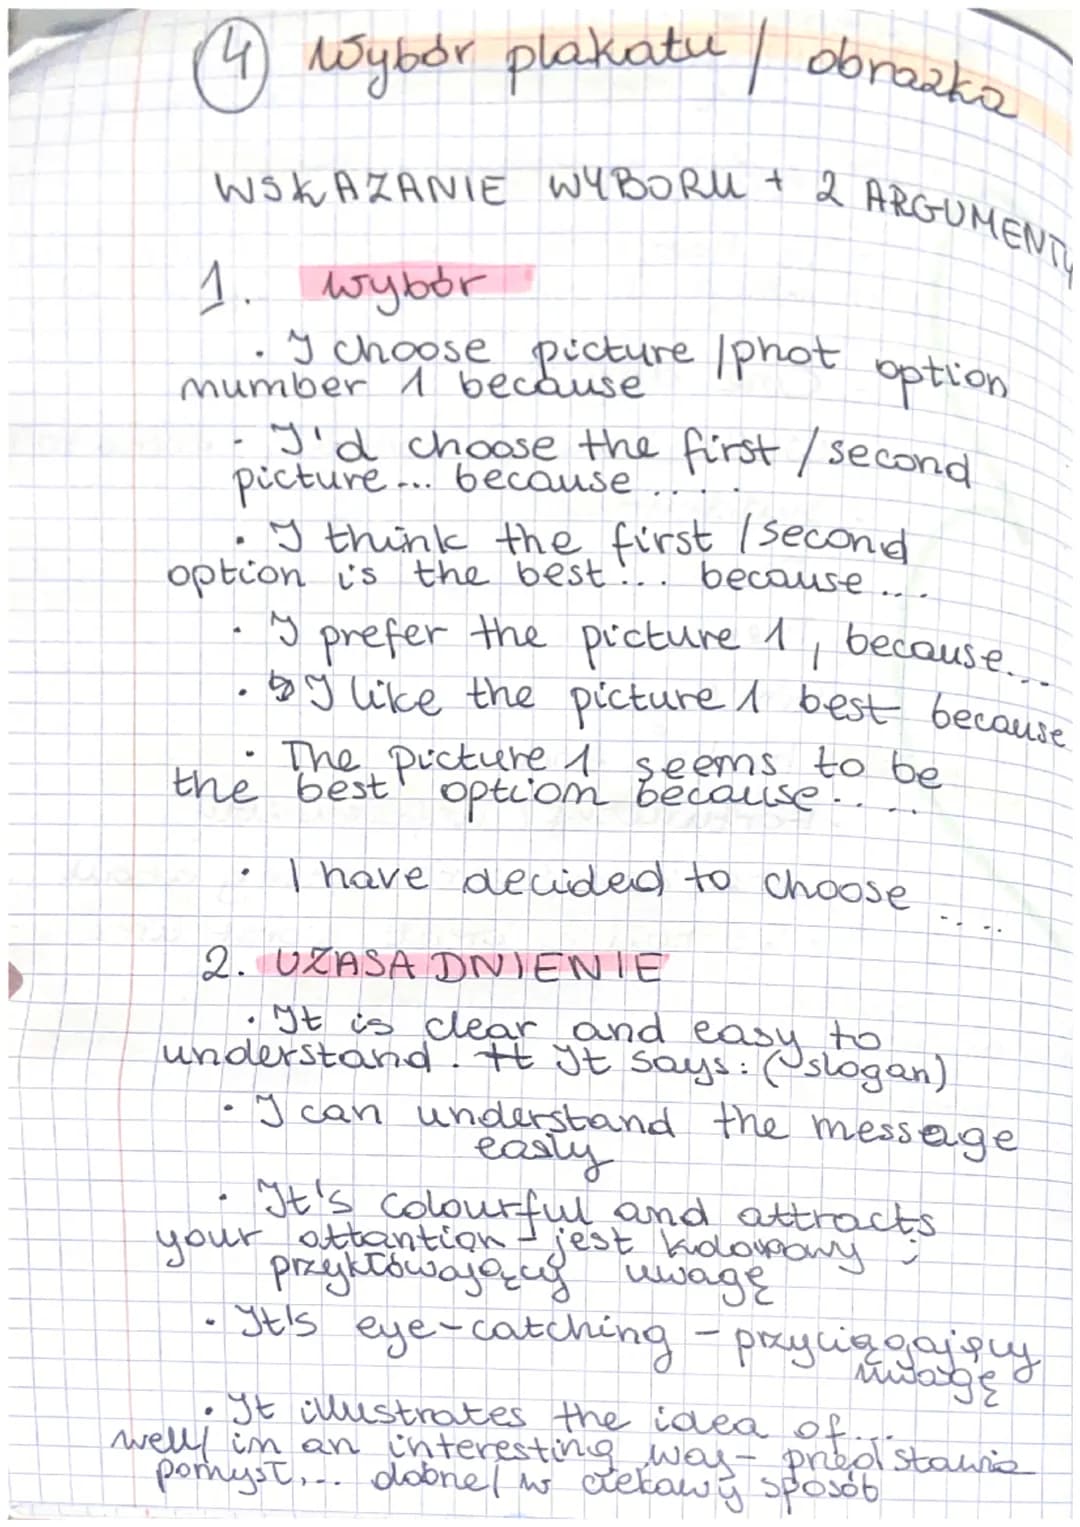 4 Wybór plakatu / obrazka
WSKAZANIE WYBORU + 2 ARGUMENTY
1. Wybór
· I choose picture /phot option
number 1 because
- I'd choose the first / second
picture... because....
· I think the first / second
option is the best... because....
· I prefer the picture 1, because...
· I like the picture 1 best because
· The picture 1 seems to be
the best option because.....
· I have decided to choose .....
2. UZASADNIENIE
· It is clear and easy to
understand. It says: (slogan)
· I can understand the message
easly
· It's colourful and attracts
your attantion - jest kolorowy i
przykówający uwagę
· It's eye-catching - przyciągający
uwagę
· It illustrates the idea of...
well/ in an interesting way - przedstawia
pomysł... dobrze/ w ciekawy sposób